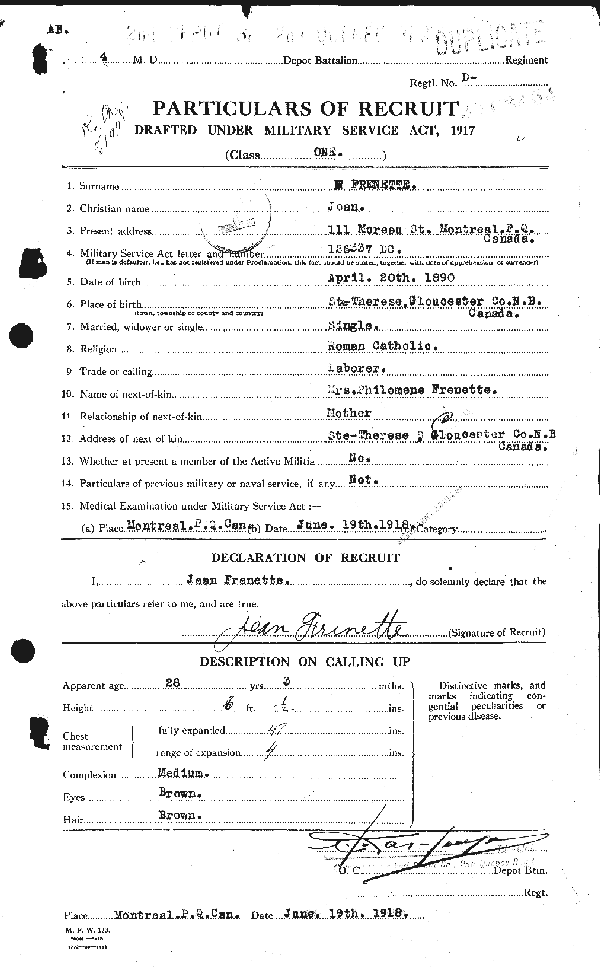 AB.
DUPLICATE
4 M. D. Depot Battalion. Regiment
Regtl. No. D-
PARTICULARS OF RECRUIT
DRAFTED UNDER MILITARY SERVICE ACT, 1917
(Class ONE. )
1. Surname FRENETTE.
2. Christian name Jean.
3. Present address 111 Moreau St. Montreal.P.Q.
Canada.
4. Military Service Act letter and number LC.
(If man is defaulter, i.e., has not registered under Proclamation, this fact should be stated, together with date of apprehension or surrender)
5. Date of birth April. 20th. 1890
6. Place of birth Ste-Therese.Gloucester Co.N.B.
(town, township or county and country) Canada.
7. Married, widower or single Single.
8. Religion Roman Catholic.
9. Trade or calling Laborer.
10. Name of next-of-kin Mrs.Philomene Frenette.
11. Relationship of next-of-kin Mother
12. Address of next of kin Ste-Therese Gloucester Co.N.B
Canada.
13. Whether at present a member of the Active Militia No.
14. Particulars of previous military or naval service, if any Not.
15. Medical Examination under Military Service Act :—
(a) Place Montreal.P.Q.Can. (b) Date June. 19th.1918. (c) Category
DECLARATION OF RECRUIT
I, Jean Frenette. , do solemnly declare that the
above particulars refer to me, and are true.
Jean Frenette (Signature of Recruit)
DESCRIPTION ON CALLING UP
Apparent age 28 yrs 3 mths.
Height ft. 1½ ins.
Chest measurement
fully expanded 47 ins.
range of expansion 4 ins.
Complexion Medium.
Eyes Brown.
Hair Brown.
Distinctive marks, and
marks indicating con-
genital peculiarities or
previous disease.
O. C. Depot Btln.
Regt.
Place Montreal.P.Q.Can. Date June. 19th. 1918.
M. F. W. 133.